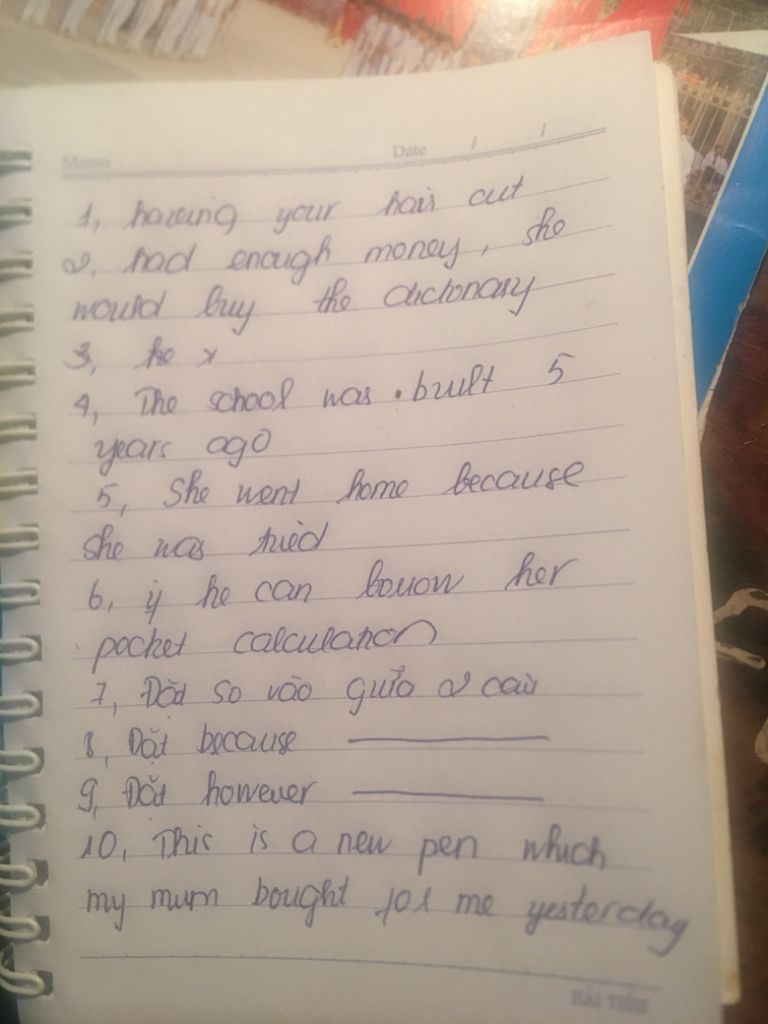 Memo Date / /
1, having your hair cut
2, had enough money, she
would buy the dictonary
3, he x
4, The school was built 5
years ago
5, She went home because
she was tried
6, if he can borrow her
pocket calculation
7, Đặt so vào giữa 2 câu
8, Đặt because
9, Đặt however
10, This is a new pen which
my mum bought for me yesterday
HẢI TIẾN